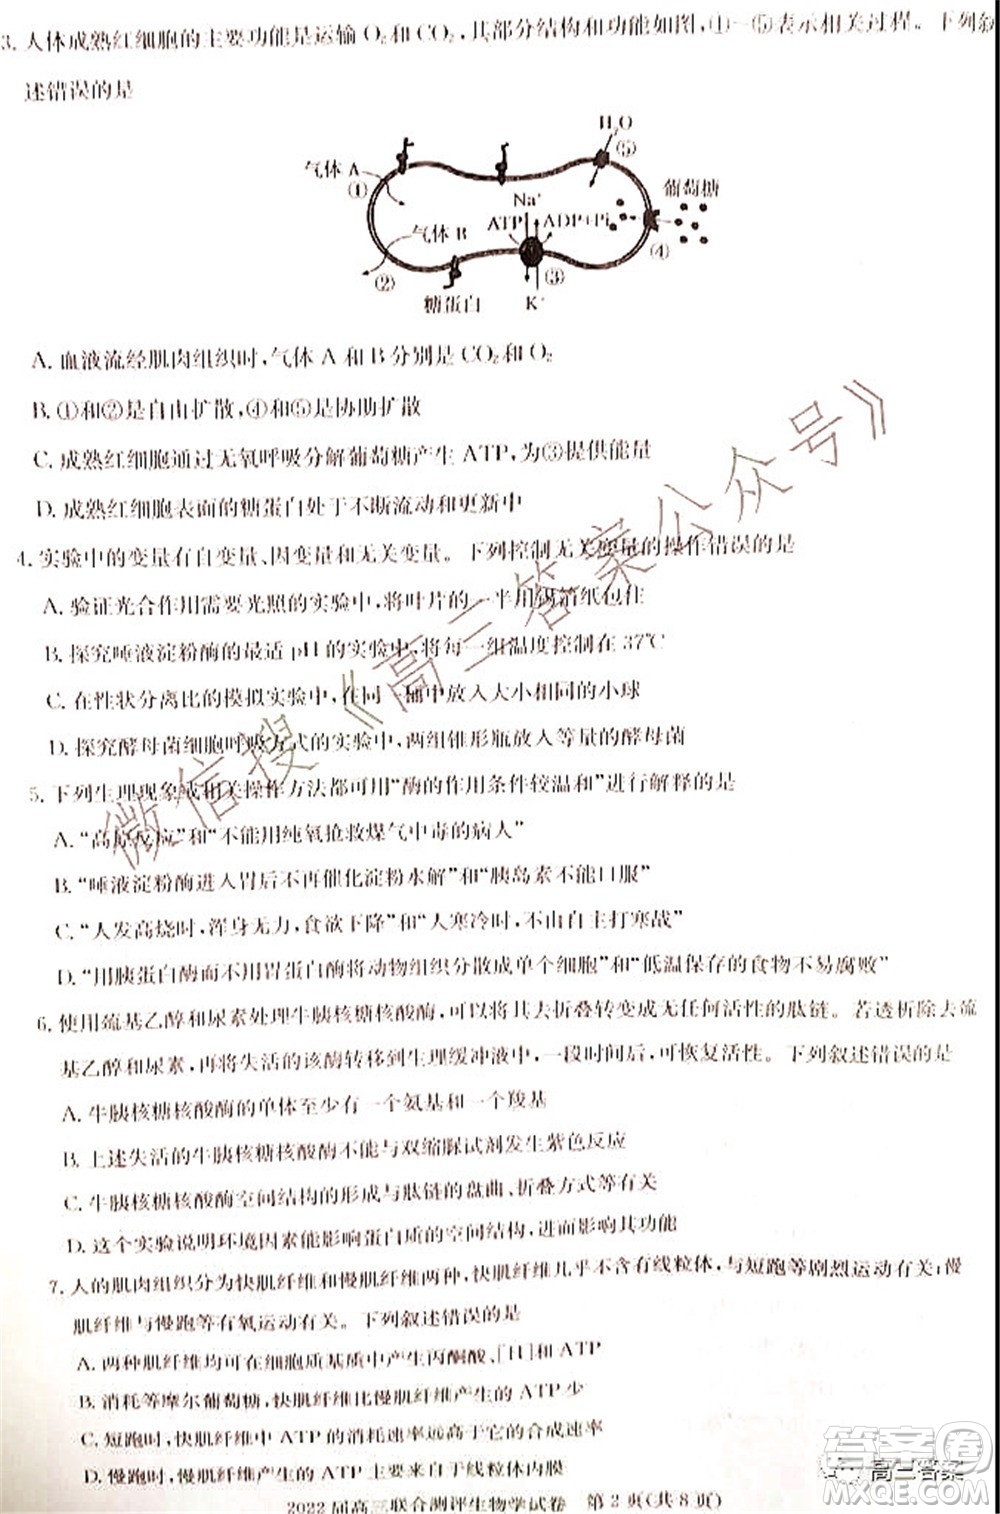 3. 人体成熟红细胞的主要功能是运输 O₂和 CO₂,其部分结构和功能如图,①—⑤表示相关过程。下列叙
述错误的是
H₂O
⑤
气体 A
①
葡萄糖
Na⁺
ATP
ADP+Pi
气体 B
②
③
④
糖蛋白
K⁺
A. 血液流经肌肉组织时,气体 A 和 B 分别是 CO₂和 O₂
B. ①和②是自由扩散,④和⑤是协助扩散
C. 成熟红细胞通过无氧呼吸分解葡萄糖产生 ATP,为③提供能量
D. 成熟红细胞表面的糖蛋白处于不断流动和更新中
4. 实验中的变量有自变量、因变量和无关变量。下列控制无关变量的操作错误的是
A. 验证光合作用需要光照的实验中,将叶片的一半用锡箔纸包住
B. 探究唾液淀粉酶的最适 pH 的实验中,将每一组温度控制在 37℃
C. 在性状分离比的模拟实验中,在同一桶中放入大小相同的小球
D. 探究酵母菌细胞呼吸方式的实验中,两组锥形瓶放入等量的酵母菌
5. 下列生理现象或相关操作方法都可用“酶的作用条件较温和”进行解释的是
A. “高原反应”和“不能用纯氧抢救煤气中毒的病人”
B. “唾液淀粉酶进入胃后不再催化淀粉水解”和“胰岛素不能口服”
C. “人发高烧时,浑身无力,食欲下降”和“人寒冷时,不由自主打寒战”
D. “用胰蛋白酶而不用胃蛋白酶将动物组织分散成单个细胞”和“低温保存的食物不易腐败”
6. 使用巯基乙醇和尿素处理牛胰核糖核酸酶,可以将其去折叠转变成无任何活性的肽链。若透析除去巯
基乙醇和尿素,再将失活的该酶转移到生理缓冲液中,一段时间后,可恢复活性。下列叙述错误的是
A. 牛胰核糖核酸酶的单体至少有一个氨基和一个羧基
B. 上述失活的牛胰核糖核酸酶不能与双缩脲试剂发生紫色反应
C. 牛胰核糖核酸酶空间结构的形成与肽链的盘曲、折叠方式等有关
D. 这个实验说明环境因素能影响蛋白质的空间结构,进而影响其功能
7. 人的肌肉组织分为快肌纤维和慢肌纤维两种,快肌纤维几乎不含有线粒体,与短跑等剧烈运动有关;慢
肌纤维与慢跑等有氧运动有关。下列叙述错误的是
A. 两种肌纤维均可在细胞质基质中产生丙酮酸、[H]和 ATP
B. 消耗等摩尔葡萄糖,快肌纤维比慢肌纤维产生的 ATP 少
C. 短跑时,快肌纤维中 ATP 的消耗速率远高于它的合成速率
D. 慢跑时,慢肌纤维产生的 ATP 主要来自于线粒体内膜
2022 届高三联合测评生物学试卷 第 2 页(共 8 页)
微信搜《高三答案公众号》
答案圈
高三答案
MXQE.COM